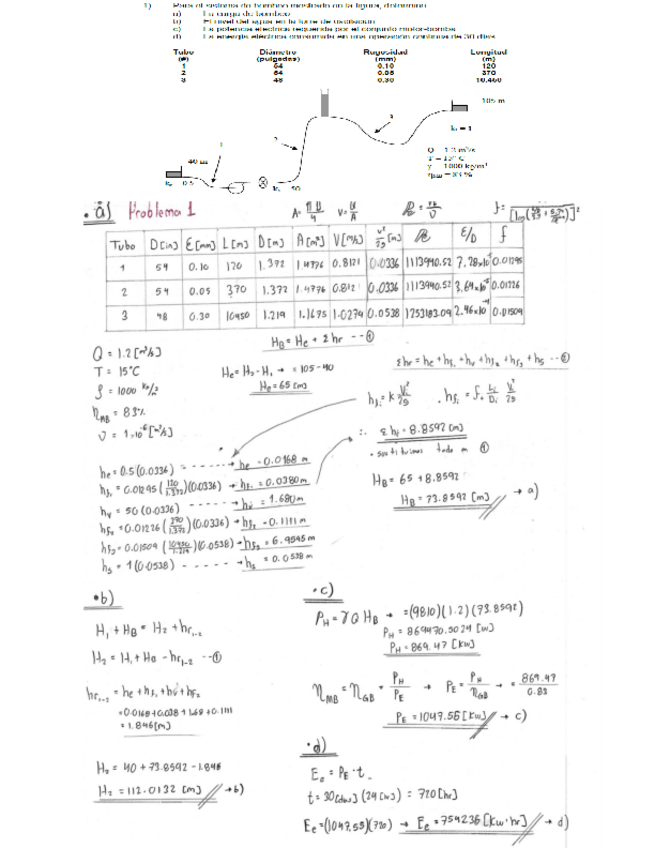 1) Para el sistema de bombeo mostrado en la figura, determinar:
a) La carga de bombeo
b) El nivel del agua en la torre de oscilación
c) La potencia eléctrica requerida por el conjunto motor-bomba
d) La energía eléctrica consumida en una operación continua de 30 días
Tubo Diámetro Rugosidad Longitud
(#) (pulgadas) (mm) (m)
1 54 0.10 120
2 54 0.05 370
3 48 0.30 10,450
105 m
3
k = 1
2
Q = 1.2 m³/s
T = 15° C
γ = 1000 kg/m³
= 83 %
1
40 m
0.5
50
• a) Problema 1
A = πD/4 V = Q/A
Tubo D[in] ε[mm] L[m] D[m] A[m²] V[m/s] v²/2g [m] R ε/D f
1 54 0.10 120 1.372 1.4776 0.8121 0.0336 1113940.52 7.28x10 0.01295
2 54 0.05 370 1.372 1.4776 0.8121 0.0336 1113940.52 3.64x10 0.01226
3 48 0.30 10450 1.219 1.1675 1.0279 0.0538 1253183.09 2.46x10 0.01509
HB = He + Σhr --①
Q = 1.2 [m³/s]
T = 15°C
ρ = 1000
ηMB = 83%
υ = 1x10⁻⁶ [m²/s]
He = H2 - H1 → = 105-40
He = 65 [m]
Σhr = he + hf1 + hv + hf2 + hf3 + hs --②
hi = k Vi²/2g , hfi = f · Li/Di Vi²/2g
he = 0.5(0.0336) - - - - → he = 0.0168 m
hf1 = 0.01295 (120/1.372)(0.0336) → hf1 = 0.0380 m
hv = 50 (0.0336) - - - - → hv = 1.680 m
hf2 = 0.01226 (370/1.372)(0.0336) → hf2 = 0.1111 m
hf3 = 0.01509 (10450/1.219)(0.0538) → hf3 = 6.9595 m
hs = 1(0.0538) - - - - → hs = 0.0538 m
∴ Σhf = 8.8592 [m]
• sustituimos todo en ①
HB = 65 + 8.8592
HB = 73.8592 [m] → a)
• b)
H1 + HB = H2 + hr1-2
H2 = H1 + HB - hr1-2 --①
hr1-2 = he + hf1 + hv + hf2
= 0.0168 + 0.038 + 1.68 + 0.1111
= 1.846 [m]
H2 = 40 + 73.8592 - 1.846
H2 = 112.0132 [m] → b)
• c)
PH = γ Q HB → = (9810)(1.2)(73.8592)
PH = 869470.5024 [w]
PH = 869.47 [Kw]
ηMB = ηGB = PH/PE → PE = PH/ηGB → = 869.47/0.83
PE = 1047.55 [Kw] → c)
• d)
Ee = PE · t
t = 30[días] (24[hrs]) = 720[hr]
Ee = (1047.55)(720) → Ee = 754236 [Kw·hr] → d)